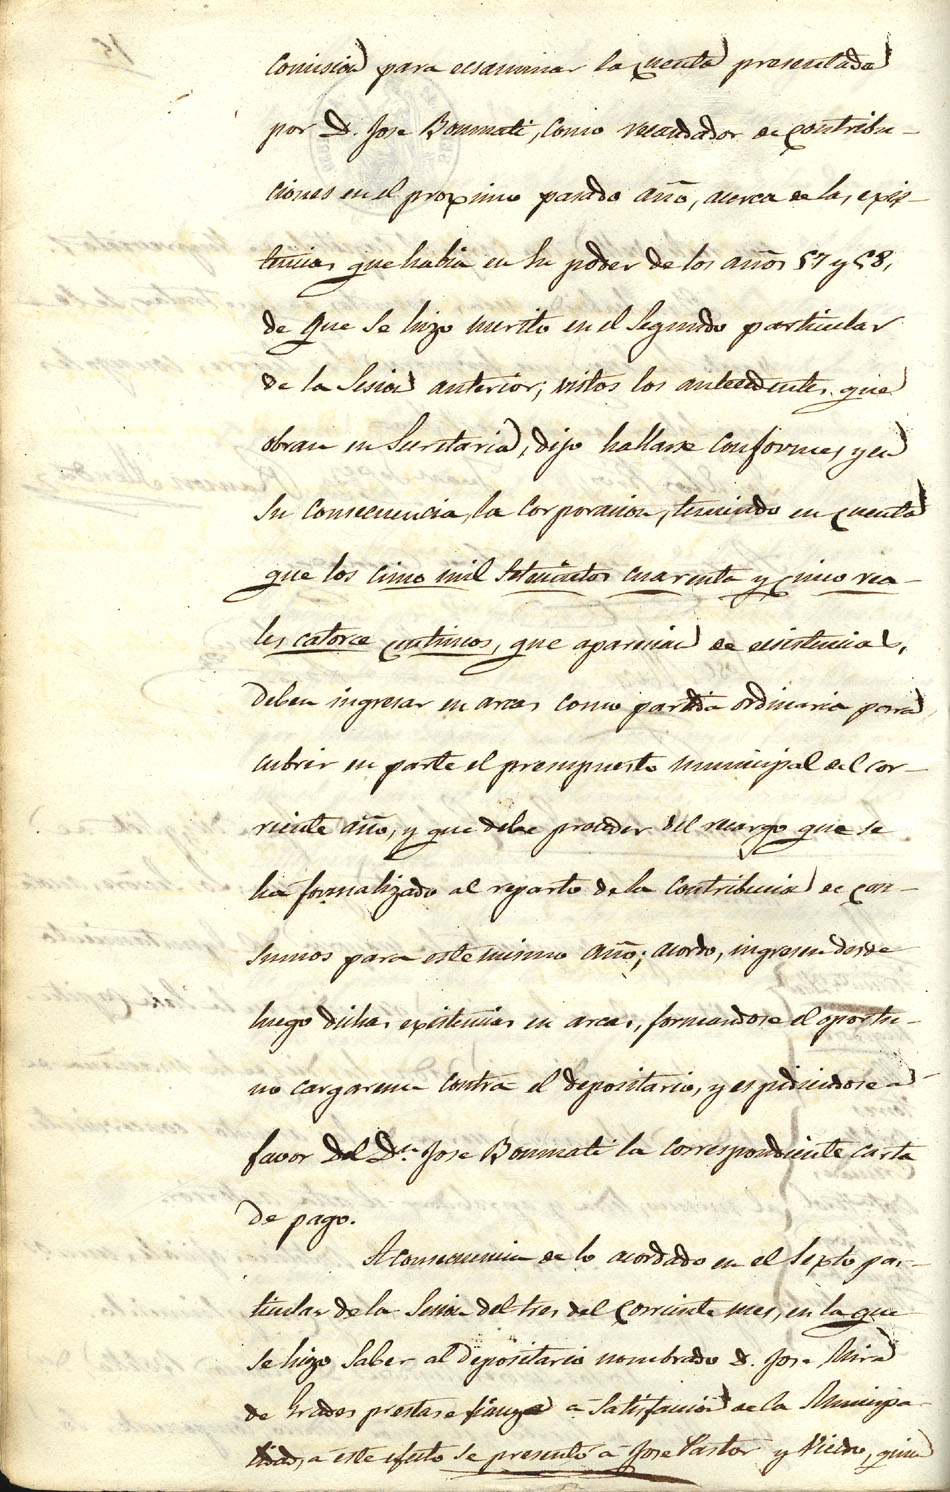 Comision para ecsaminar la cuenta presentada
por D. Jose Bonmati, como recaudador de contribu-
ciones en el procsimo pasado año, acerca de las exis-
tencias que habia en su poder de los años 57 y 58,
de que se hizo merito en el segundo particular
de la sesion anterior; vistos los antecedentes que
obran en Secretaria, dijo hallarse conformes, y en
su consecuencia, la Corporacion, teniendo en cuenta
que los cinco mil setecientos cuarenta y cinco rea-
les catorce centimos, que aparecian de ecsistencias,
deben ingresar en arcas como partida ordinaria para
cubrir en parte el presupuesto municipal del cor-
riente año, y que debe proceder del recargo que se
ha formalizado al reparto de la Contribucion de con-
sumos para este mismo año; acordo, ingresen desde
luego dichas existencias en arcas, formandose el oportu-
no cargareme contra el depositario, y espidiendose a
favor del Dn. Jose Bonmati la correspondiente carta
de pago.
A consecuencia de lo acordado en el sexto par-
ticular de la sesion del tres del corriente mes, en la que
se hizo saber al depositario nombrado D. Jose Mira
de prestase fianza a satisfacion de la Municipa-
lidad, a este efecto se presentó a Jose Pastor y quien
15